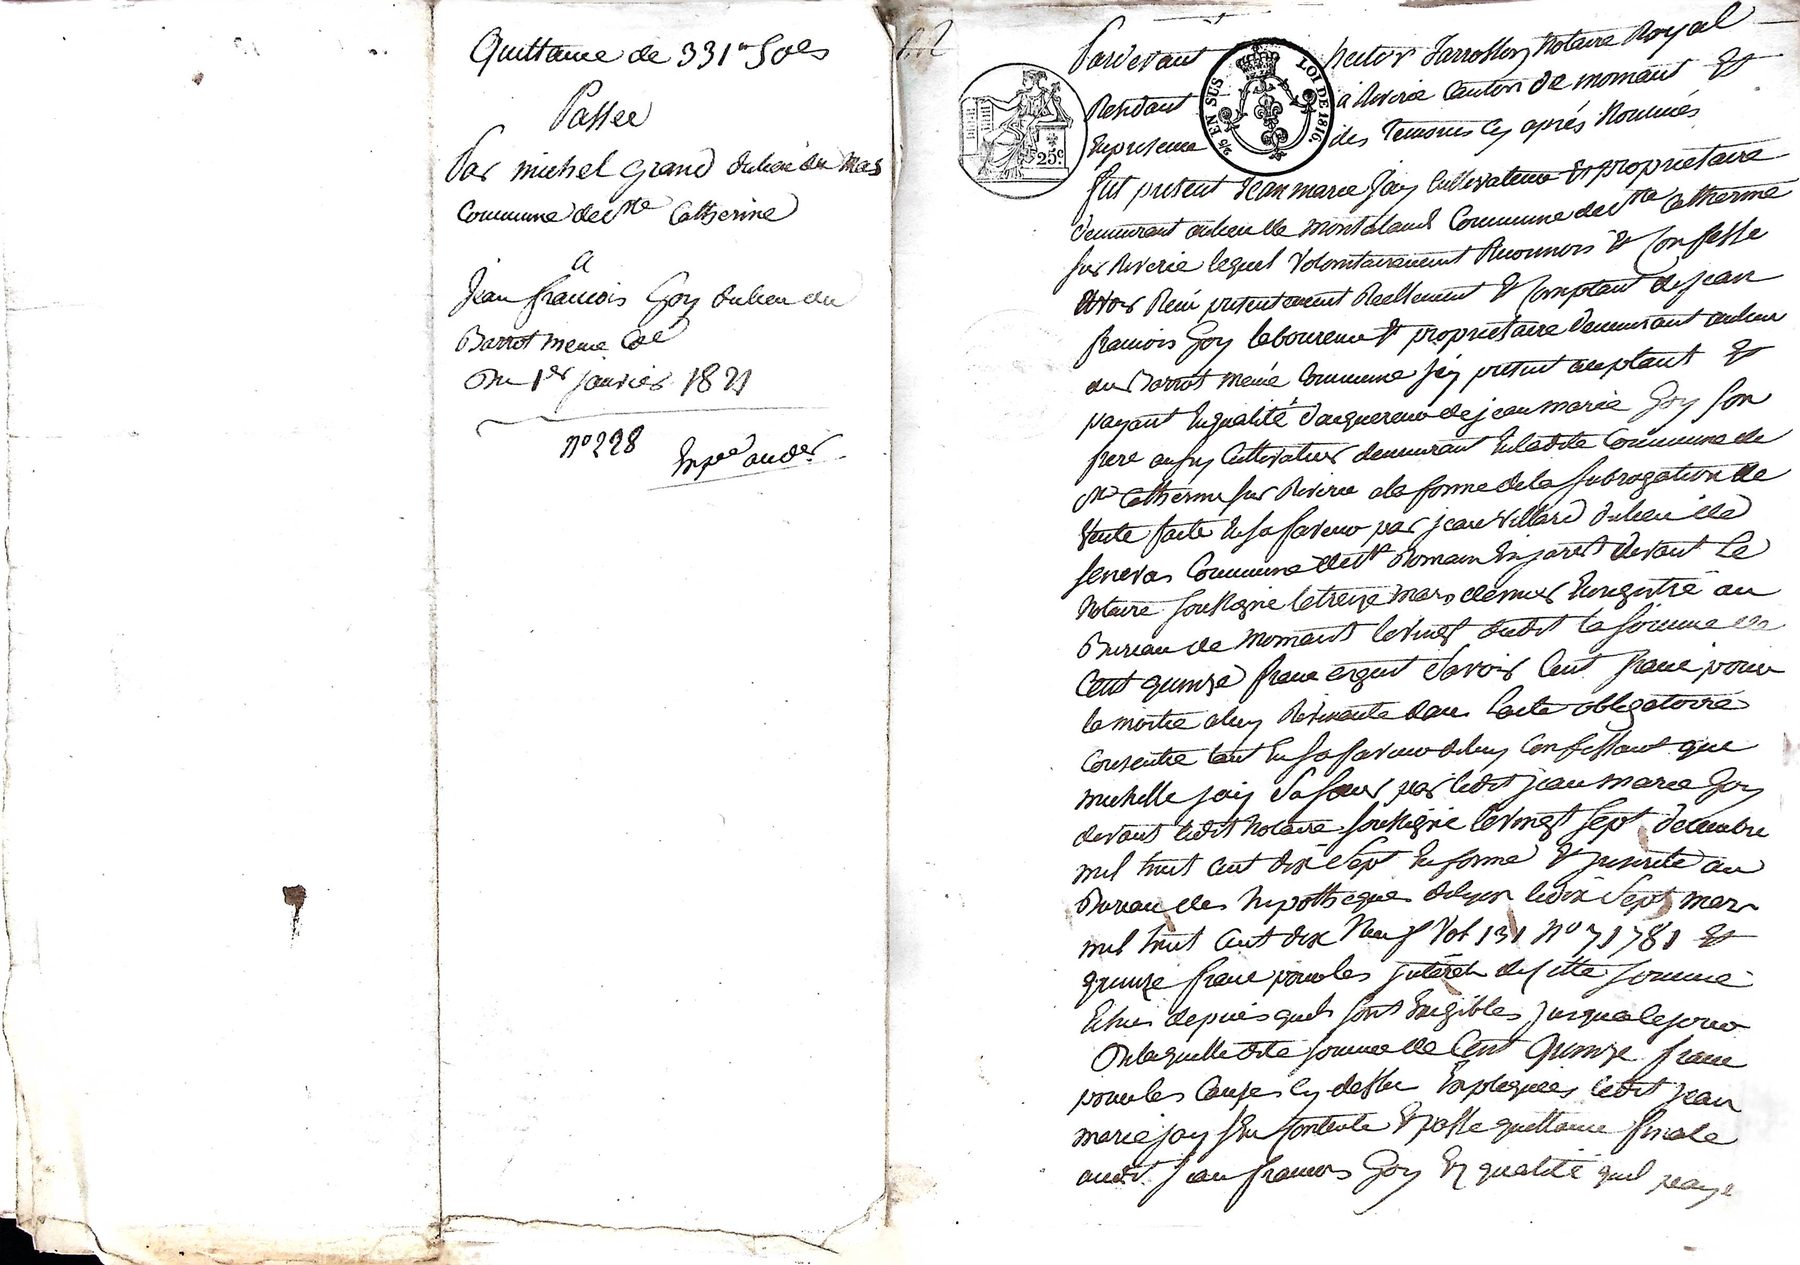 Quittance de 331 " 50es
Passée
Par michel grand du lieu du mas
Commune de Ste Catherine
a
Jean francois Goy du lieu du
Barrot meme Cne
Du 1er janvier 1821
N° 228
112
Pardevant hector Notaire Royal
Residant a Riverie Canton de mornant Et
En presence des Temoins Cy aprés Nommés
EN SUS
LOI DE 1816
25c
fut present Jean marie Jay Cultivateur & proprietaire
demeurant au lieu de montaland Commune de Ste Catherine
sur Riverie lequel Volontairement Reconnois & Confesse
avoir Reçu presentement Reellement & Comptant de jean
francois Goy laboureur & proprietaire demeurant au lieu
du Barrot meme Commune jcy present acceptant Et
payant En qualité d'acquereur de jean marie Goy son
frere aussy Cultivateur demeurant En ladite Commune de
Ste Catherine sur Riverie a la forme de la subrogation de
Vente faite En sa faveur par jean Villard du lieu de
senevas Commune de St Romain En jarest devant Le
Notaire soussigné le treize mars dernier Enregistré au
Bureau de mornant le vingt dudit la somme de
Cent quinze franc argent Savoir Cent franc pour
la moitié a luy Revenante dans l'acte obligatoire
Consentie tant En sa faveur de luy Confessant que
michelle jay sa soeur par ledit jean marie Goy
devant ledit Notaire soussigné le vingt sept decembre
mil huit cent dix sept En forme & jnscrite au
Bureau des hypotheques de lyon le dix sept mars
mil huit Cent dix Neuf Vol 131 N° 71781 Et
quinze franc pour les jnterets de Cette somme
Echus depuis quils sont Exigibles jusqua ce jour
De laquelle dite somme de Cent Quinze franc
pour les Causes Cy dessus Expliquées ledit jean
marie jay s'En Contente & passe quittance finale
audit jean francois Goy En qualité quil paye